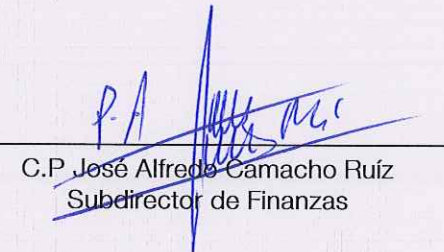 P.A
C.P José Alfredo Camacho Ruíz
Subdirector de Finanzas